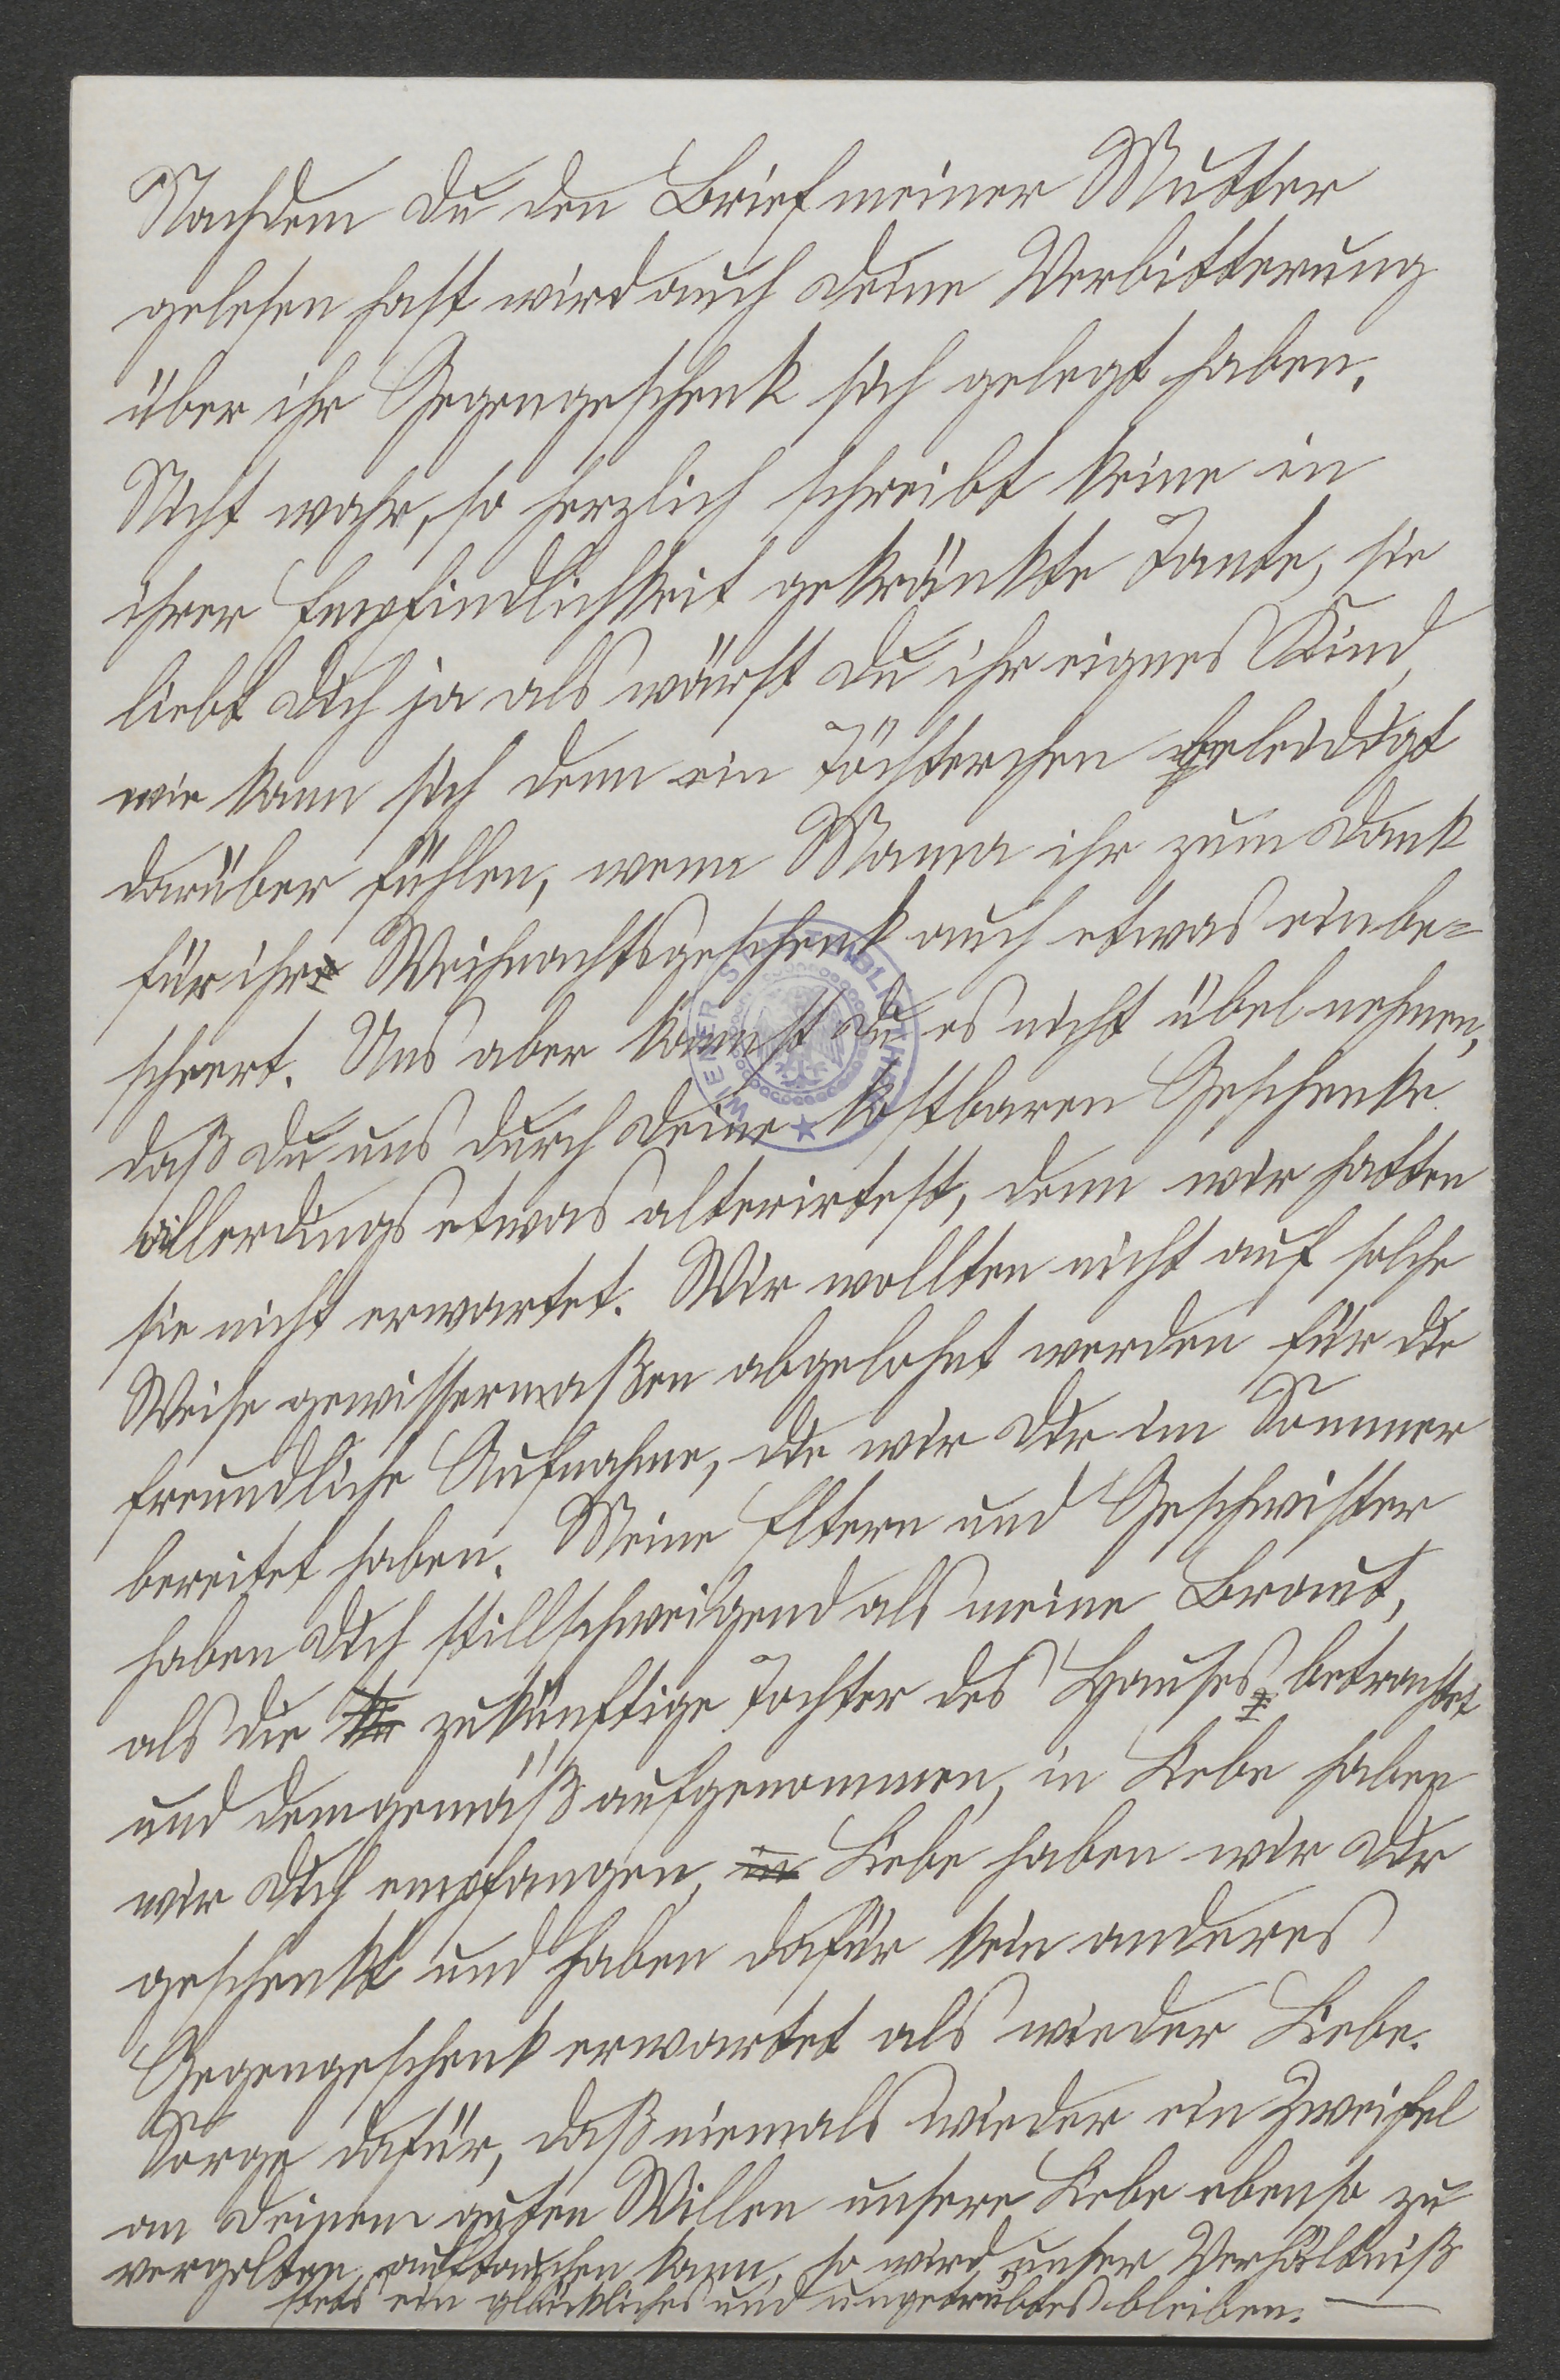 Nachdem Du den Brief meiner Mutter
gelesen hast wird auch Deine Verbitterung
über ihr Gegengeschenk sich gelegt haben.
Nicht wahr, so herzlich schreibt keine in
ihrer Empfindlichkeit gekränkte Tante, sie
liebt Dich ja als wärst Du ihr eignes Kind,
wie kann sich denn ein Töchterchen beleidigt
darüber fühlen, wenn Mama ihr zum Dank
für ihr Weihnachtsgeschenk auch etwas einbe=
scheert. Uns aber kannst Du es nicht übel nehmen,
daß Du uns durch Deine kostbaren Geschenke
allerdings etwas alterirtest, denn wir hatten
sie nicht erwartet. Wir wollten nicht auf solche
Weise gewissermaßen abgelohnt werden für die
freundliche Aufnahme, die wir Dir im Sommer
bereitet haben. Meine Eltern und Geschwister
haben Dich stillschweigend als meine Braut,
als die zukünftige Tochter des Hauses betrachtet
und demgemäß aufgenommen, in Liebe haben
wir Dich empfangen, in Liebe haben wir Dir
geschenkt und haben dafür kein anderes
Gegengeschenk erwartet als wieder Liebe.
Sorge dafür, daß niemals wieder ein Zweifel
an Deinem guten Willen unsere Liebe ebenso zu
vergelten auftauchen kann, so wird unser Verhältniß
stets ein glückliches und ungetrübtes bleiben. —
WIENER STADTBIBLIOTHEK